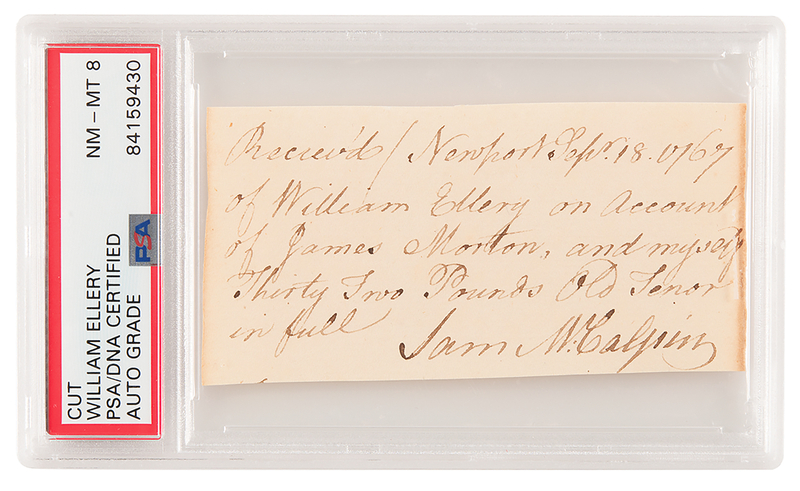 CUT
WILLIAM ELLERY
PSA/DNA CERTIFIED
AUTO GRADE
NM – MT 8
84159430
PSA
Reciev'd / Newport Sepr. 18. 1767
of William Ellery on Account
of James Morton, and myself
Thirty Two Pounds Old Tenor
in full
Sam McCalpin